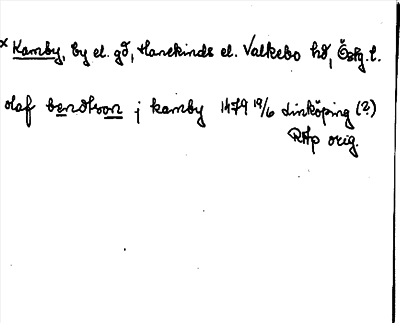 x Kamby, by el. gd, Hanekinds el. Valkebo hd, Östg. l.
olaf bendhson j kamby 1479 19/6 Linköping (?)
RAp orig.